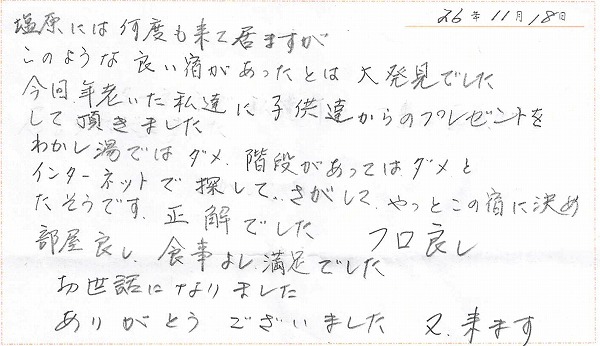 26年11月18日
塩原には何度も来て居ますが
このような良い宿があったとは大発見でした
今回年老いた私達に子供達からのプレゼントを
して頂きました
わかし湯ではダメ、階段があってはダメと
インターネットで探して、さがして、やっとこの宿に決め
たそうです、正解でした
部屋良し、食事よし、満足でした フロ良し
お世話になりました
ありがとうございました 又、来ます